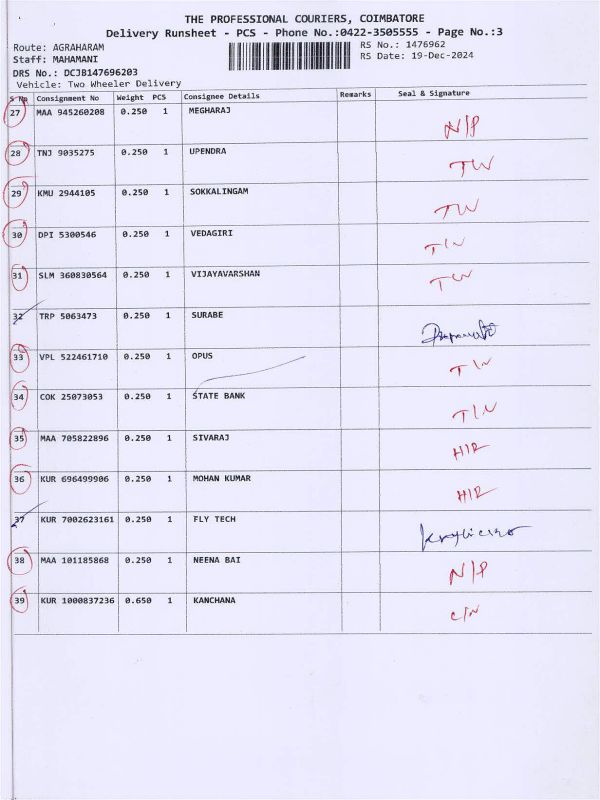 THE PROFESSIONAL COURIERS, COIMBATORE
Delivery Runsheet - PCS - Phone No.:0422-3505555 - Page No.:3
Route: AGRAHARAM RS No.: 1476962
Staff: MAHAMANI RS Date: 19-Dec-2024
DRS No.: DCJB147696203
Vehicle: Two Wheeler Delivery
S No Consignment No Weight PCS Consignee Details Remarks Seal & Signature
27 MAA 945260208 0.250 1 MEGHARAJ N/P
28 TNJ 9035275 0.250 1 UPENDRA TW
29 KMU 2944105 0.250 1 SOKKALINGAM TW
30 DPI 5300546 0.250 1 VEDAGIRI TW
31 SLM 360830564 0.250 1 VIJAYAVARSHAN TW
32 TRP 5063473 0.250 1 SURABE
33 VPL 522461710 0.250 1 OPUS TW
34 COK 25073053 0.250 1 STATE BANK TW
35 MAA 705822896 0.250 1 SIVARAJ
36 KUR 696499906 0.250 1 MOHAN KUMAR
37 KUR 7002623161 0.250 1 FLY TECH
38 MAA 101185868 0.250 1 NEENA BAI N/P
39 KUR 1000837236 0.650 1 KANCHANA